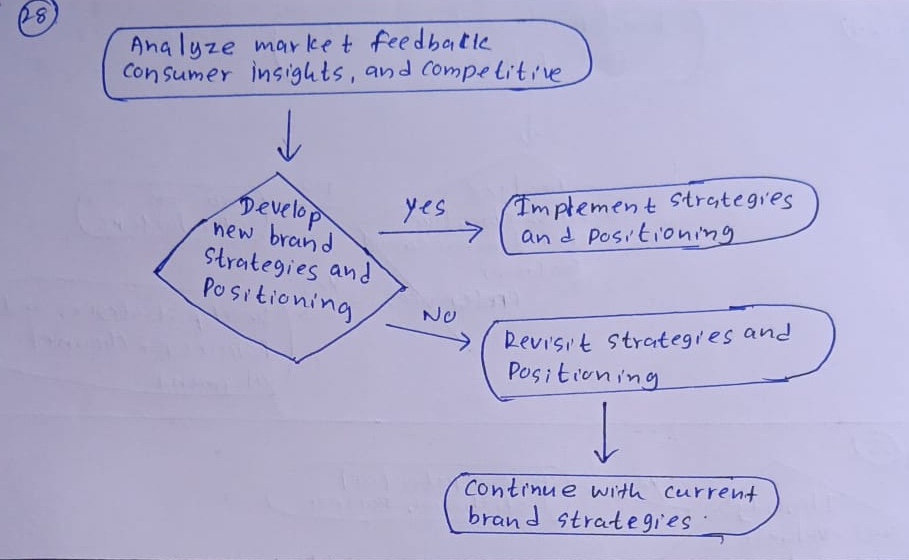 28
Analyze market feedback
consumer insights, and competitive
Develop
new brand
strategies and
Positioning
yes
Implement strategies
and positioning
No
Revisit strategies and
Positioning
continue with current
brand strategies.